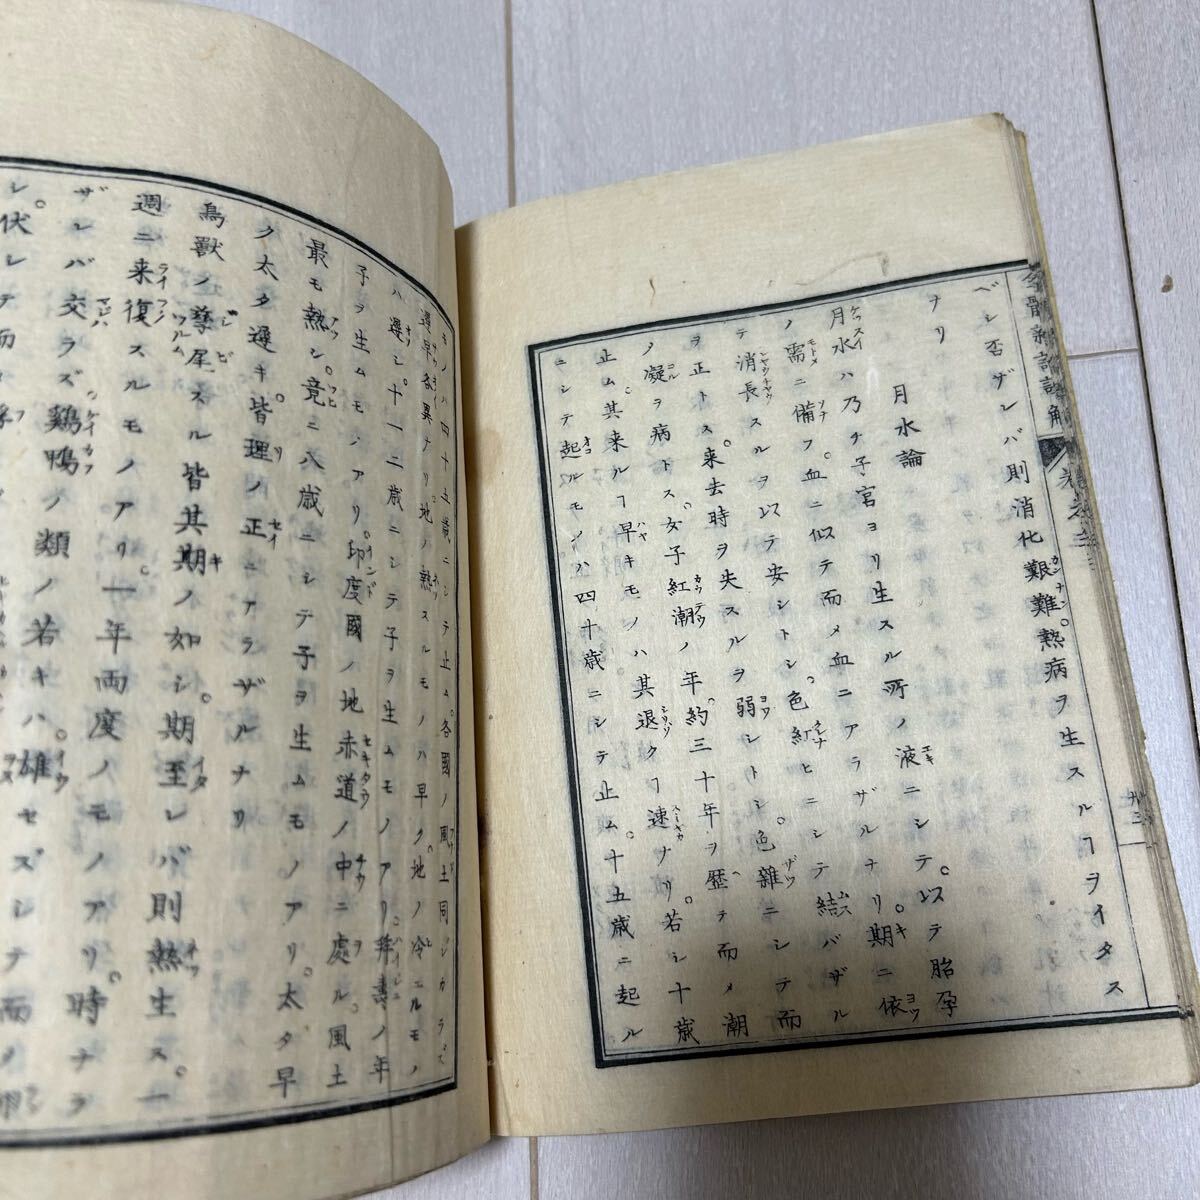 ベシ否ザレバ則消化艱難熱病ヲ生スルヿヲイタス
ヿヲリ
月水論
月水ハ乃チ子宮ヨリ生スル所ノ液ニシテ。以テ胎孕
ノ需ニ備フ。血ニ似テ而メ血ニアラザルナリ。期ニ依
テ消長スルヲ以テ安シトシ。色紅ヒニシテ結バザル
ヲ正トス。来去時ヲ失スルヲ弱シトシ。色雜ニシテ而
ノ凝ヲ病トス。女子紅潮ノ年。約三十年ヲ歴テ而メ潮
止ム。其来ルヿ早キモノハ其退クヿ速ナリ。若シ十歳
ニシテ起ルモノハ四十歳ニシテ止ム。十五歳ニ起ル
モノハ四十五歳ニシテ止ム。各國ノ風土同シカラズ
遅早各異ナリ。地ノ熱スルモノハ早ク。地ノ冷ユルモノ
ハ遅シ。十一二歳ニシテ子ヲ生ムモノアリ。
子ヲ生ムモノアリ。印度國ノ地赤道ノ中ニ處ル。風土
最モ熱シ。竟ニ八歳ニシテ子ヲ生ムモノアリ。太タ早
ク太タ遅キ。皆理ノ正ニアラザルナリ
鳥獸ノ孳尾スル皆其期ノ如シ。期至レバ則熱生ス。一
週ニ来復スルモノアリ。一年両度ノモノアリ。時ナラ
ザレバ交ラズ。鷄鴨ノ類ノ若キハ。雄セズシテ而ノ卵